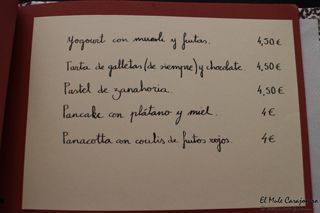 Yogourt con muesli y frutas. 4,50€
Tarta de galletas (de siempre) y chocolate. 4,50€
Pastel de zanahoria. 4,50€
Pancake con plátano y miel. 4€
Panacotta con coulis de frutos rojos. 4€
El Mule Carajonero